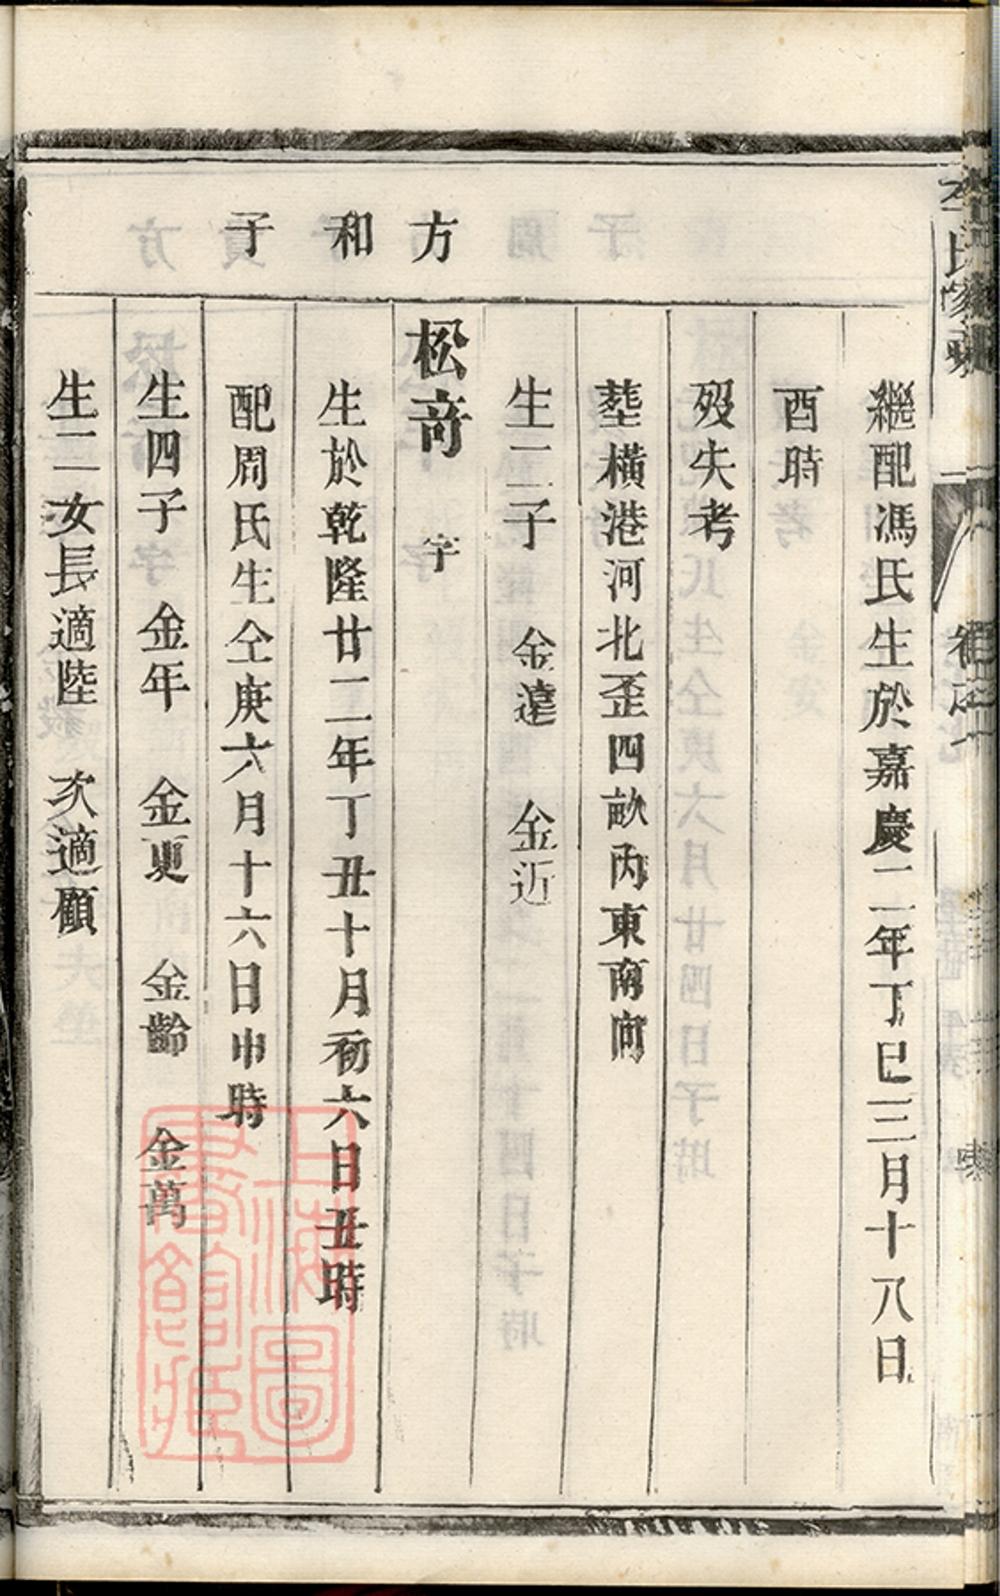 繼配馮氏生於嘉慶二年丁巳三月十八日
酉時
歿失考
塟橫港河北歪四畝丙東南向
生二子 金達 金近
方和子
松竒 字
生於乾隆廿二年丁丑十月初六日丑時
配周氏生仝庚六月十六日申時
生四子 金年 金更 金齡 金萬
生二女長適陸 次適顧
上海圖書館藏